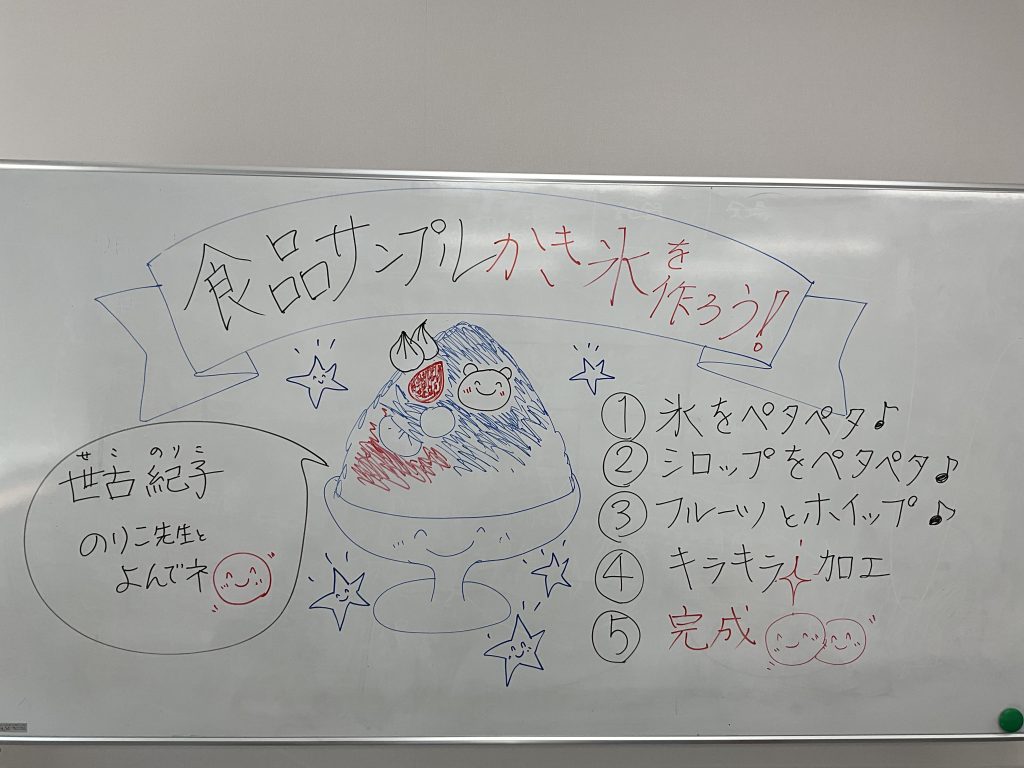 食品サンプルかき氷を作ろう!
せこ のりこ
世古 紀子
のりこ先生と
よんでネ
① 氷をペタペタ♪
② シロップをペタペタ♪
③ フルーツとホイップ♪
④ キラキラ加工
⑤ 完成